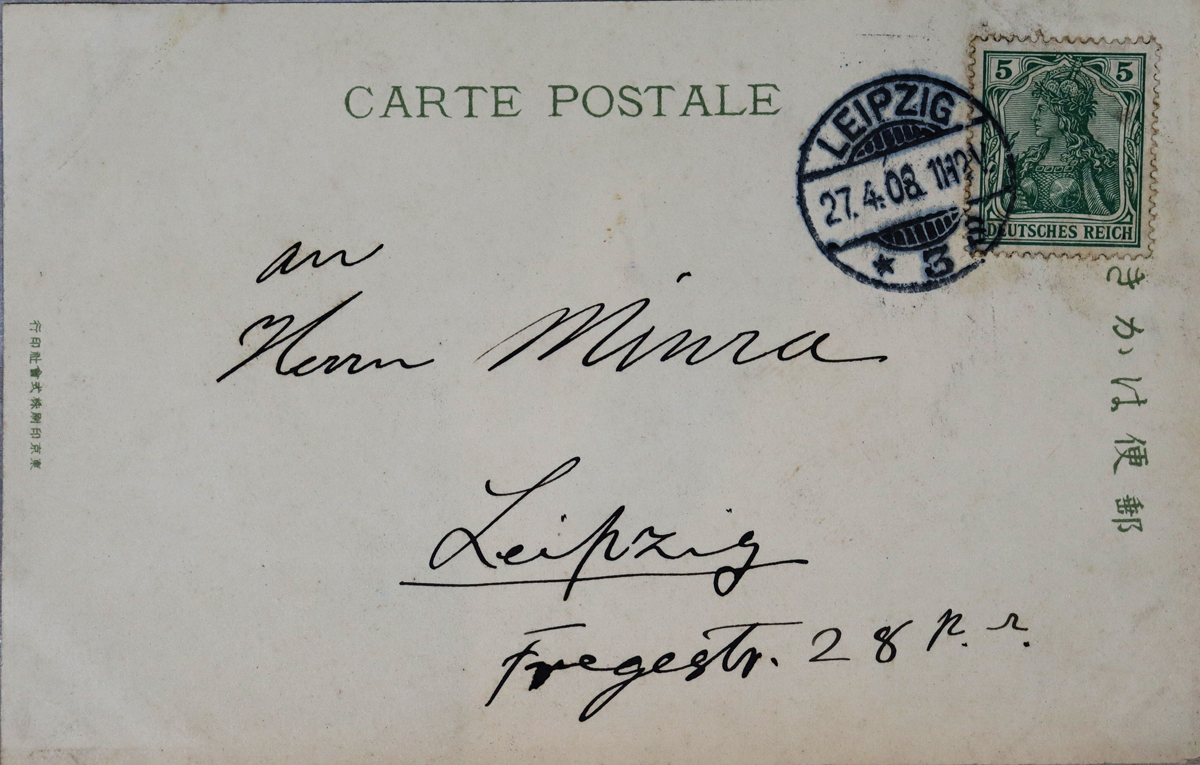 CARTE POSTALE
5 5
DEUTSCHES REICH
LEIPZIG
27.4.08. 11-12V.
* 3
郵便はかき
an
Herrn Miura
Leipzig
Fregestr. 28 p. r.
東京印刷株式會社印行